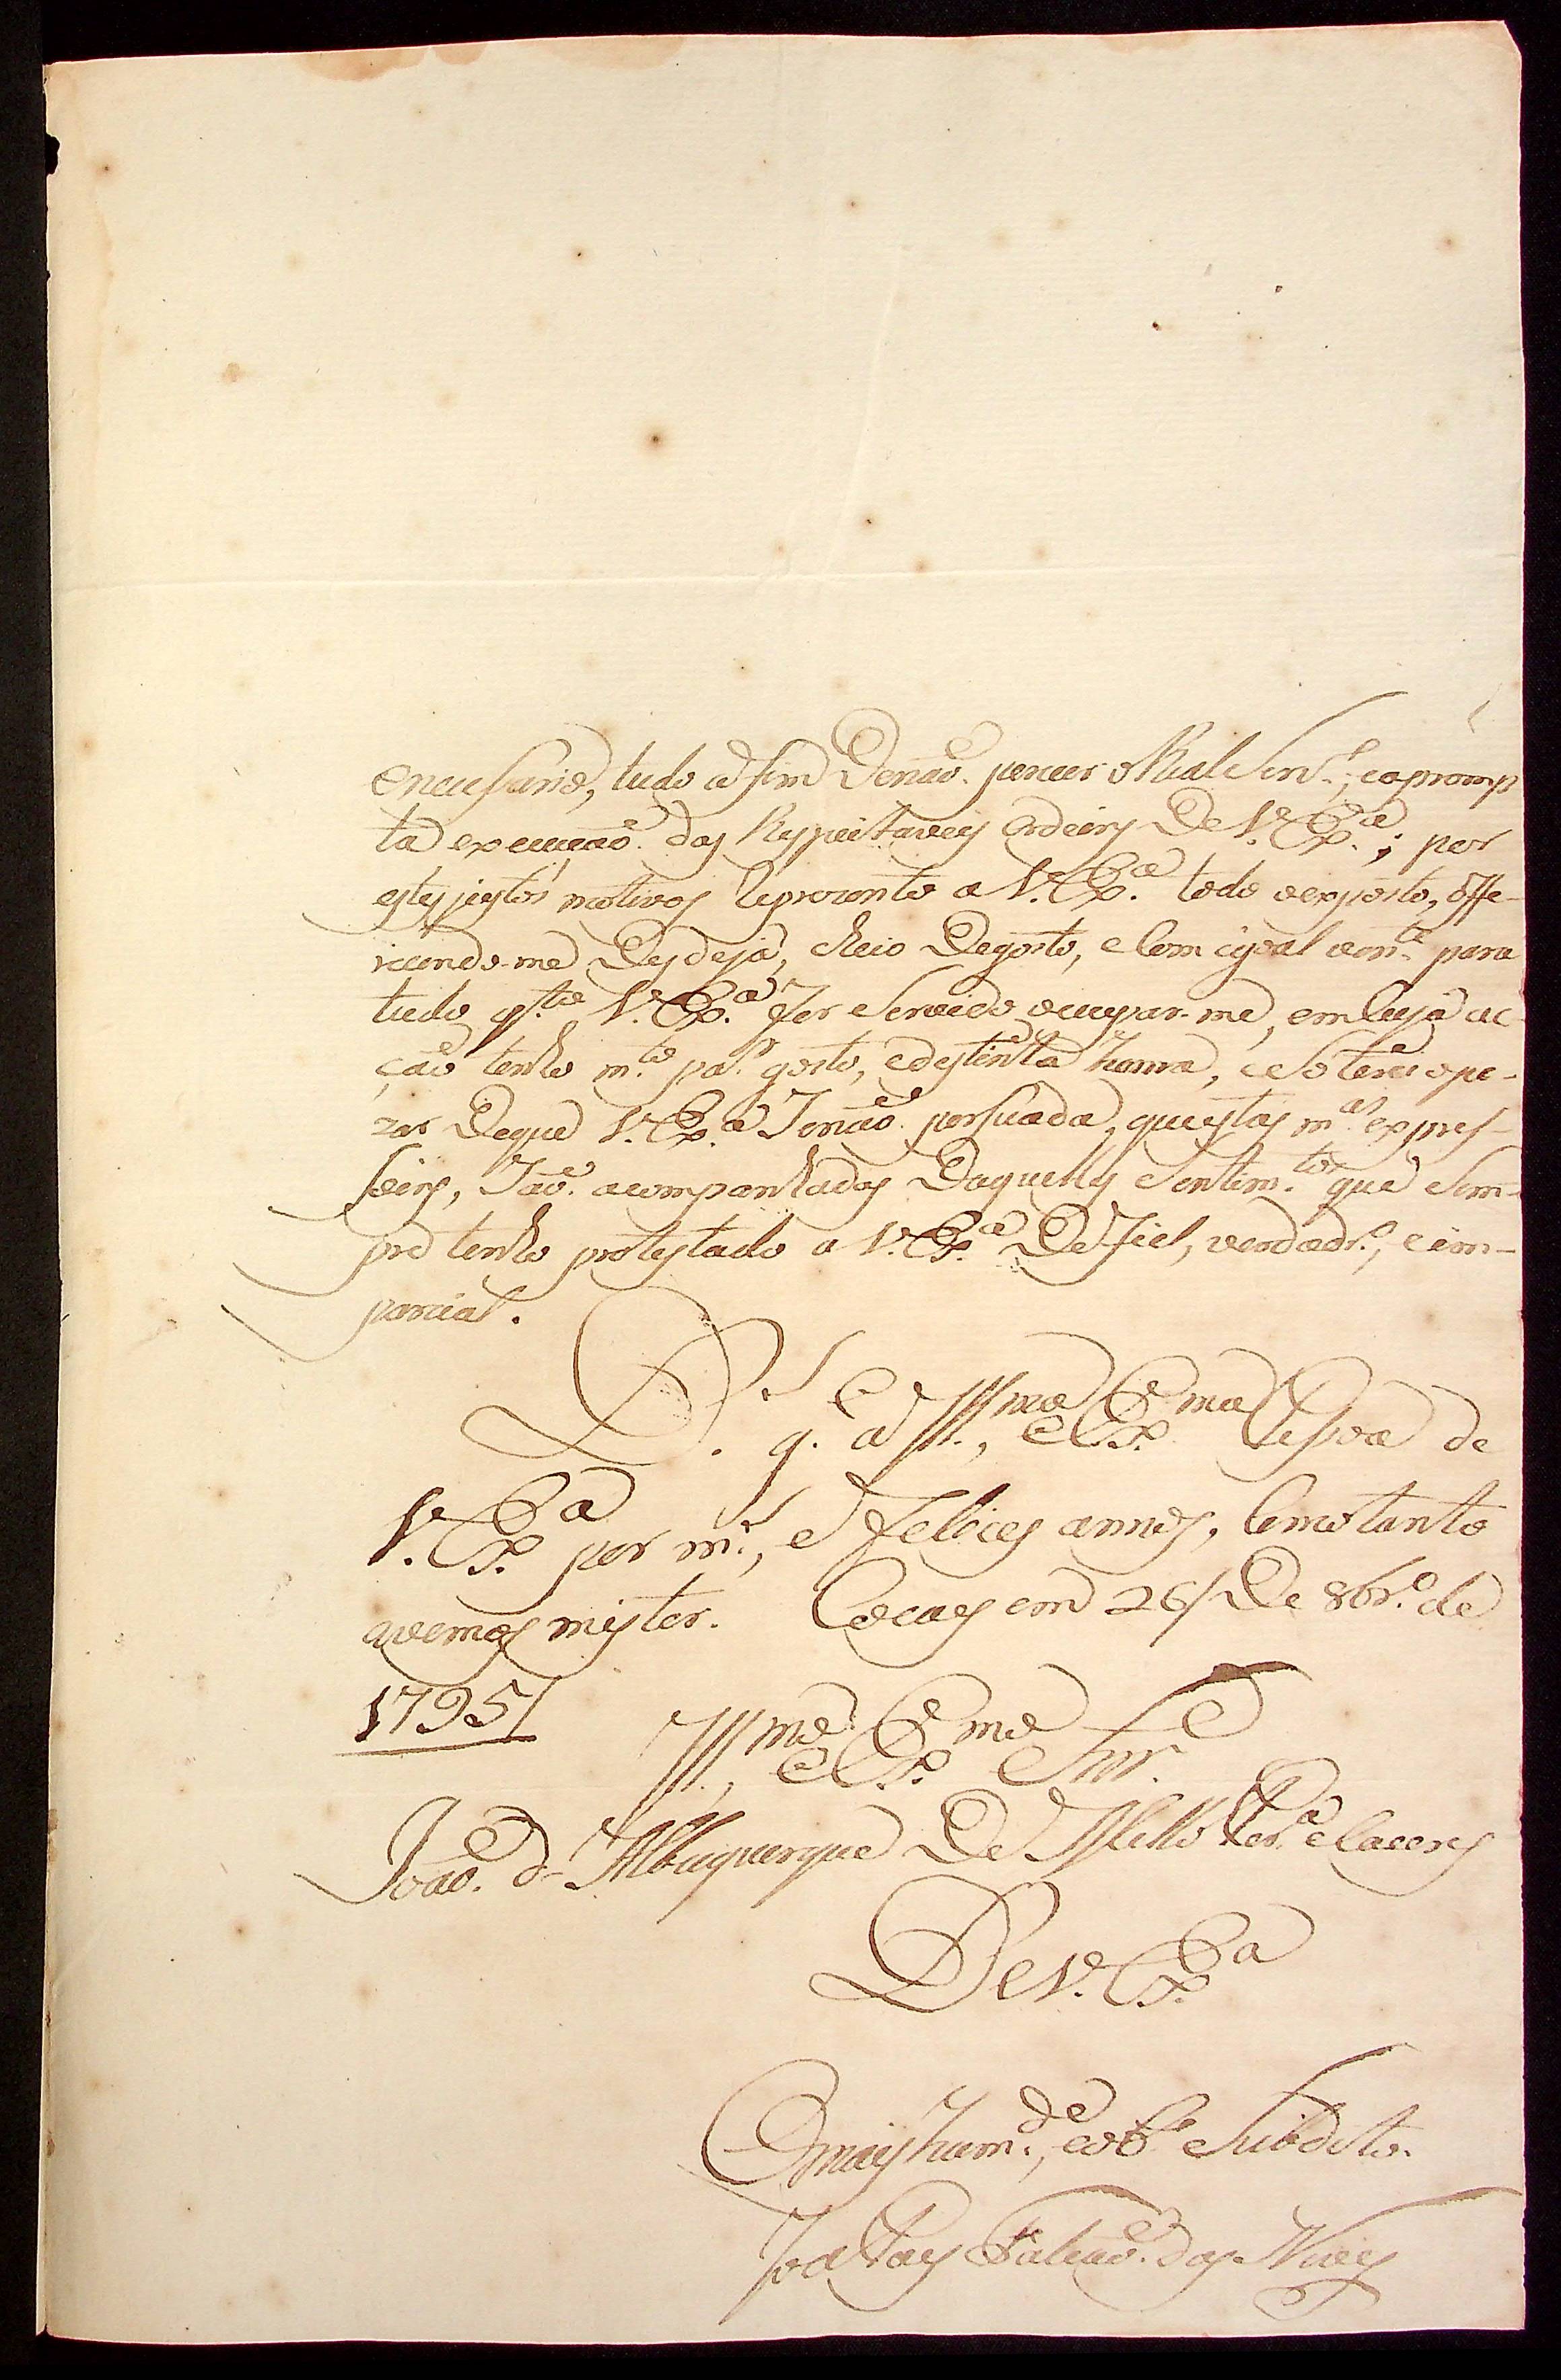 eneceſario, tudo a fim Denaõ. parecer o Real Serv.º, eapromp
ta execuçaõ. das Respeitaveis ordeins De V. Ex.ª; por
estes justos motivos Reprezento a V. Ex.ª todo oexposto, offe-
recendo-me Desdeja, cheio Degosto, eCom igoal vont.e para
tudo q.to V. Ex.ª for Servido ocupar-me, emCuja ac
çaõ tenho m.to par.r gosto, edestinta honra, eSo terei ope-
zar Deque V. Ex.ª Senaõ. persuada, queestas m.as expreſ-
soins, Saõ. acompanhadas Daquelles Sentim.tos que Sem-
pre tenho protestado a V. Ex.ª De fiel, verdadr.º, eim-
parcial.
D.s g.e a Ill.ma, e Ex.ma Pesoa de
V. Ex.ª por m.s, e Felices annos, Como tanto
avemos mister. Cocaes em 26/ De 8br.º de
1795/
Ill.mo, e Ex.mo Snr.
Joaõ. d'Albuquerque De Mello Per.ª eCaceres
De V. Ex.ª
Omais hum.de, eob.e Subdito.
Joze Paes Falcaõ. das Neves